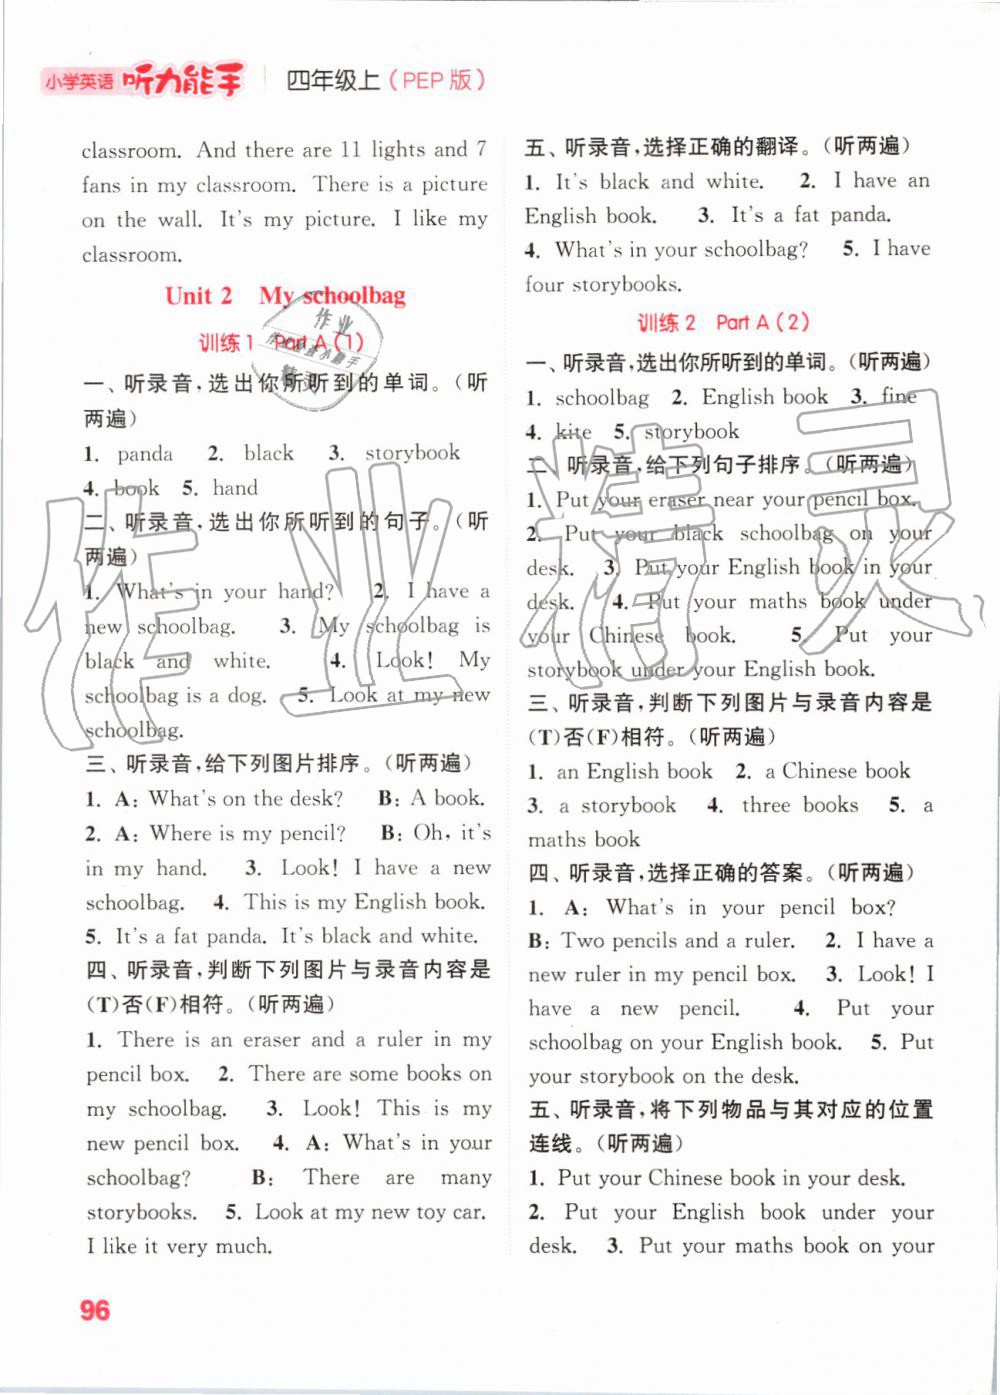 小学英语 听力能手 四年级上(PEP版)
classroom. And there are 11 lights and 7
fans in my classroom. There is a picture
on the wall. It's my picture. I like my
classroom.
Unit 2 My schoolbag
训练1 Part A(1)
一、听录音,选出你所听到的单词。(听
两遍)
1. panda 2. black 3. storybook
4. book 5. hand
二、听录音,选出你所听到的句子。(听
两遍)
1. What's in your hand? 2. I have a
new schoolbag. 3. My schoolbag is
black and white. 4. Look! My
schoolbag is a dog. 5. Look at my new
schoolbag.
三、听录音,给下列图片排序。(听两遍)
1. A: What's on the desk? B: A book.
2. A: Where is my pencil? B: Oh, it's
in my hand. 3. Look! I have a new
schoolbag. 4. This is my English book.
5. It's a fat panda. It's black and white.
四、听录音,判断下列图片与录音内容是
(T)否(F)相符。(听两遍)
1. There is an eraser and a ruler in my
pencil box. 2. There are some books on
my schoolbag. 3. Look! This is my
new pencil box. 4. A: What's in your
schoolbag? B: There are many
storybooks. 5. Look at my new toy car.
I like it very much.
五、听录音,选择正确的翻译。(听两遍)
1. It's black and white. 2. I have an
English book. 3. It's a fat panda.
4. What's in your schoolbag? 5. I have
four storybooks.
训练2 Part A(2)
一、听录音,选出你所听到的单词。(听两遍)
1. schoolbag 2. English book 3. fine
4. kite 5. storybook
二、听录音,给下列句子排序。(听两遍)
1. Put your eraser near your pencil box.
2. Put your black schoolbag on your
desk. 3. Put your English book in your
desk. 4. Put your maths book under
your Chinese book. 5. Put your
storybook under your English book.
三、听录音,判断下列图片与录音内容是
(T)否(F)相符。(听两遍)
1. an English book 2. a Chinese book
3. a storybook 4. three books 5. a
maths book
四、听录音,选择正确的答案。(听两遍)
1. A: What's in your pencil box?
B: Two pencils and a ruler. 2. I have a
new ruler in my pencil box. 3. Look! I
have a new pencil. 4. Put your
schoolbag on your English book. 5. Put
your storybook on the desk.
五、听录音,将下列物品与其对应的位置
连线。(听两遍)
1. Put your Chinese book in your desk.
2. Put your English book under your
desk. 3. Put your maths book on your
96
作业精灵